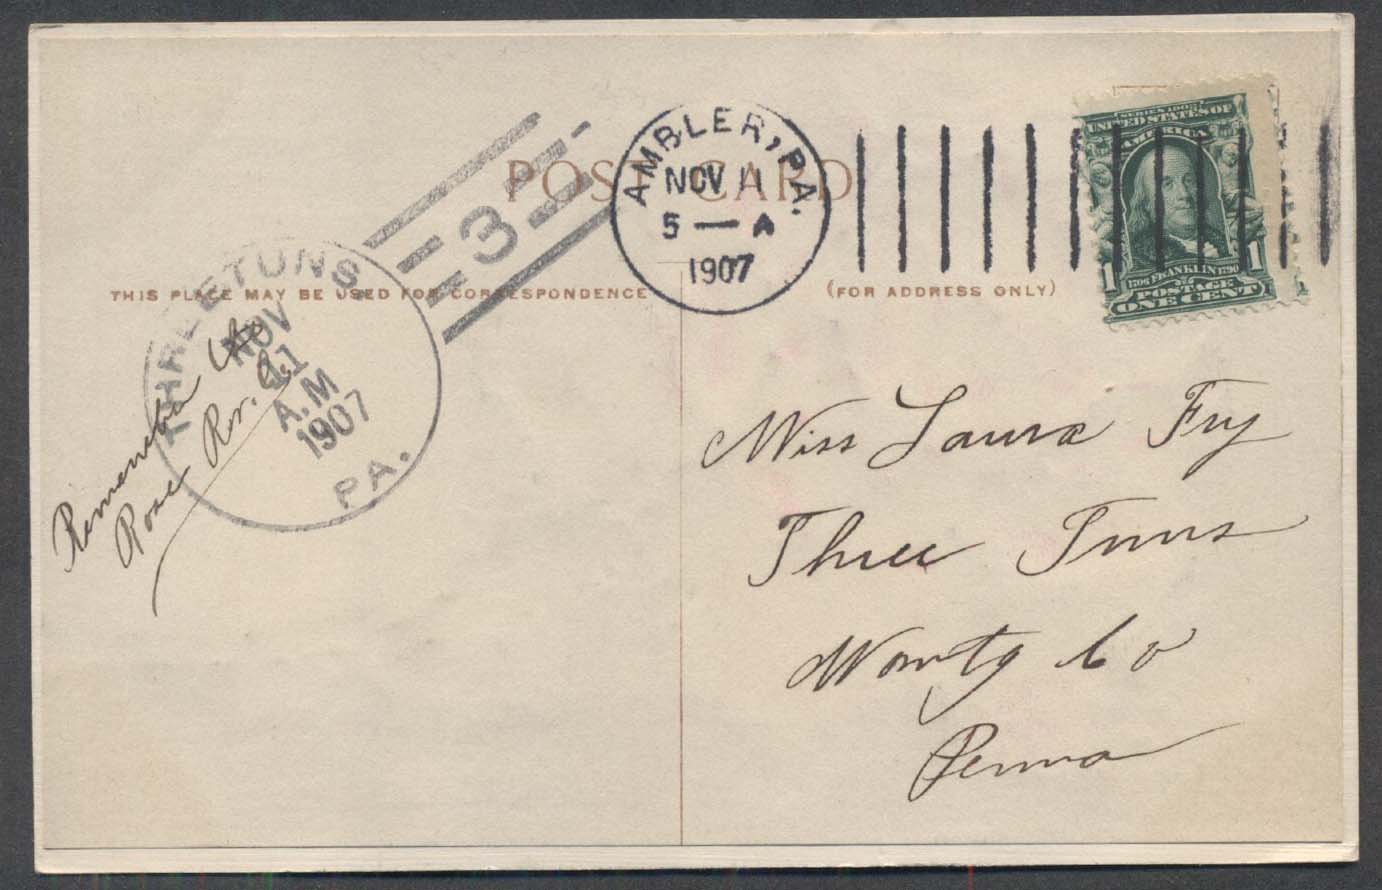 POST CARD
THIS PLACE MAY BE USED FOR CORRESPONDENCE
(FOR ADDRESS ONLY)
AMBLER, PA.
NOV 11
5 — A
1907
SERIES 1902
UNITED STATES OF
AMERICA
1706 FRANKLIN 1790
POSTAGE
1 ONE CENT 1
3
NOV
11
A.M
1907
PA.
Rose
Miss Laura Fry
Three Tunns
Co
Penna